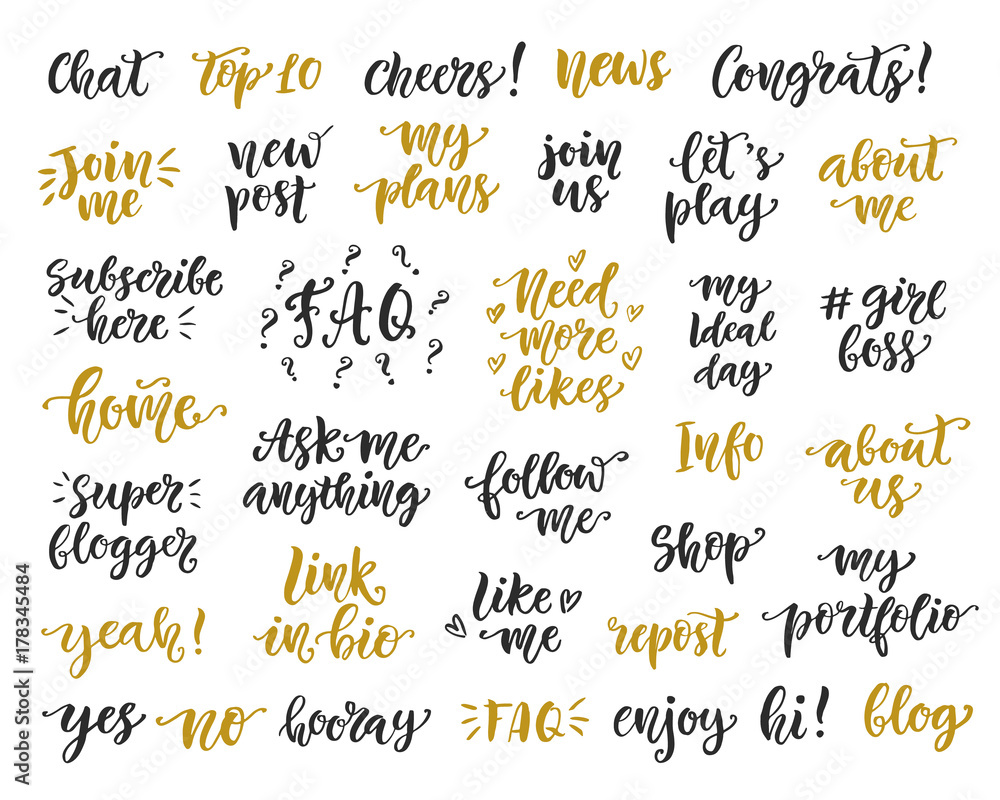 Chat
Top 10
cheers!
news
Congrats!
Join
me
new
post
my
plans
join
us
let's
play
about
me
Subscribe
here
? ? ? ? ?
FAQ
? ? ? ? ?
Need
more
likes
my
Ideal
day
# girl
boss
home
Ask me
anything
follow
me
Info
about
us
Super
blogger
Link
in bio
Like
me
Shop
repost
my
portfolio
yeah!
yes
no
hooray
FAQ
enjoy
hi!
blog
Adobe Stock | #178345484